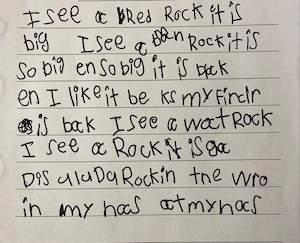 I see a Red Rock it is
big I see a Rock it is
so big en so big it is back
en I like it be ks my Firclr
is back I see a wat Rock
I see a Rock it is ga
Dis a Rock in the wro
in my has at my has